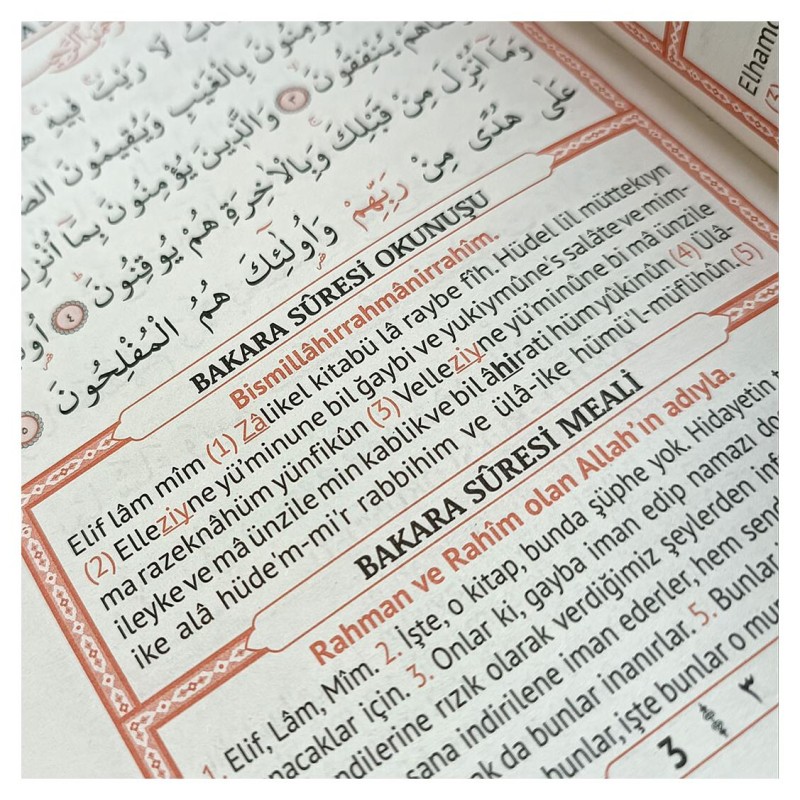 لَا رَيْبَ فِيهِ
يُؤْمِنُونَ بِالْغَيْبِ وَيُقِيمُونَ
يُنْفِقُونَ ٣ وَالَّذِينَ يُؤْمِنُونَ بِمَا
وَمَا أُنْزِلَ مِنْ قَبْلِكَ وَبِالْاٰخِرَةِ هُمْ يُوقِنُونَ ٤
عَلٰى هُدًى مِنْ رَبِّهِمْ وَأُولٰئِكَ هُمُ الْمُفْلِحُونَ ٥
BAKARA SÛRESİ OKUNUŞU
Bismillâhirrahmânirrahîm.
Elif lâm mîm (1) Zâlikel kitabü lâ raybe fîh. Hüdel lil müttekıyn
(2) Elleziyne yü'minune bil ğaybi ve yukiymûne's salâte ve mim-
ma razeknâhüm yünfikûn (3) Velleziyne yü'minûne bi mâ ünzile
ileyke ve mâ ünzile min kablik ve bil âhirati hüm yûkinûn (4) Ülâ-
ike alâ hüde'm-mi'r rabbihim ve ülâ-ike hümü'l-müflihûn. (5)
BAKARA SÛRESİ MEALİ
Rahman ve Rahîm olan Allah'ın adıyla.
1. Elif, Lâm, Mîm. 2. İşte, o kitap, bunda şüphe yok. Hidayetin
için. 3. Onlar ki, gayba iman edip namazı
rızık olarak verdiğimiz şeylerden
sana indirilene iman ederler, hem
da bunlar inanırlar. 5. Bunlar
işte bunlar o
3 ٣
Elham